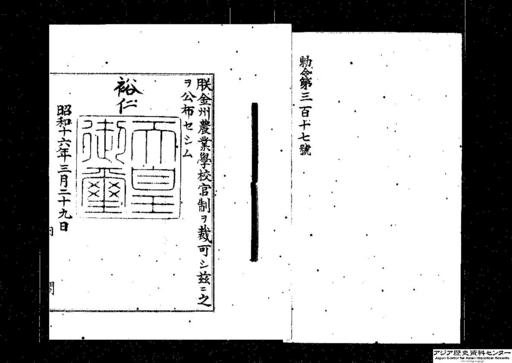 勅令第三百十七號
朕金州農業學校官制ヲ裁可シ玆ニ之
ヲ公布セシム
裕仁
天皇
御璽
昭和十六年三月二十九日
内 閣
アジア歴史資料センター
Japan Center for Asian Historical Records